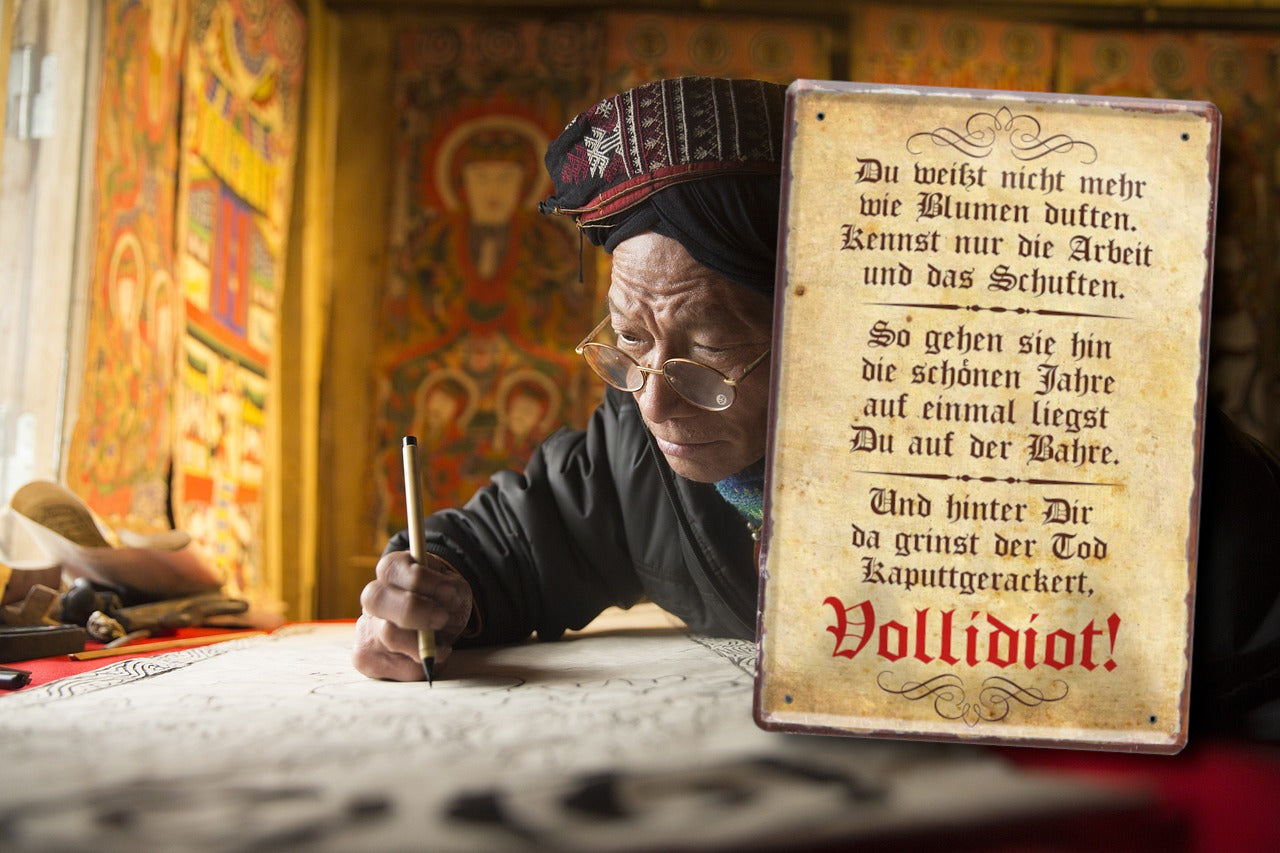 Du weißt nicht mehr
wie Blumen duften.
Kennst nur die Arbeit
und das Schuften.
So gehen sie hin
die schönen Jahre
auf einmal liegst
Du auf der Bahre.
Und hinter Dir
da grinst der Tod
Kaputtgerackert,
Vollidiot!